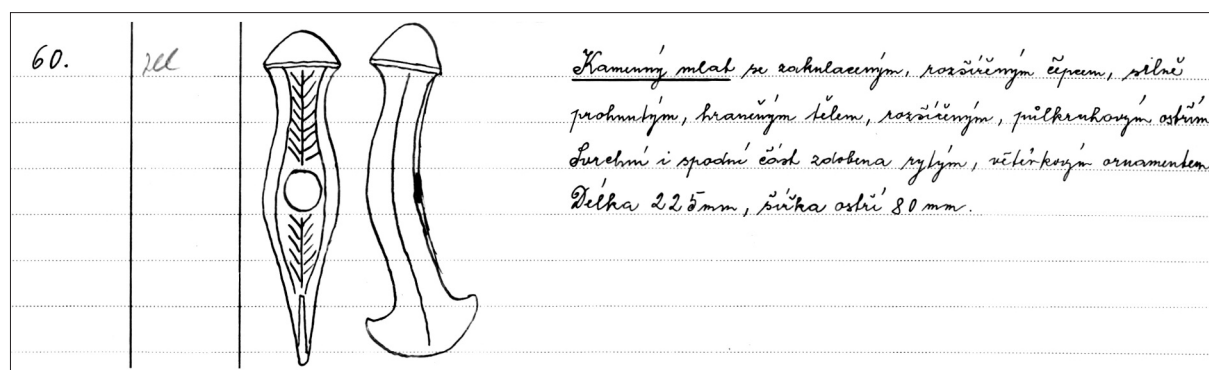 60.
Kamenný mlat se zakulaceným, rozšířeným čepcem, silně
prohnutým, hraněným tělem, rozšířeným, půlkruhovým ostřím
Svrchní i spodní část zdobena rytým, větévkovým ornamentem
Délka 225mm, šířka ostří 80mm.